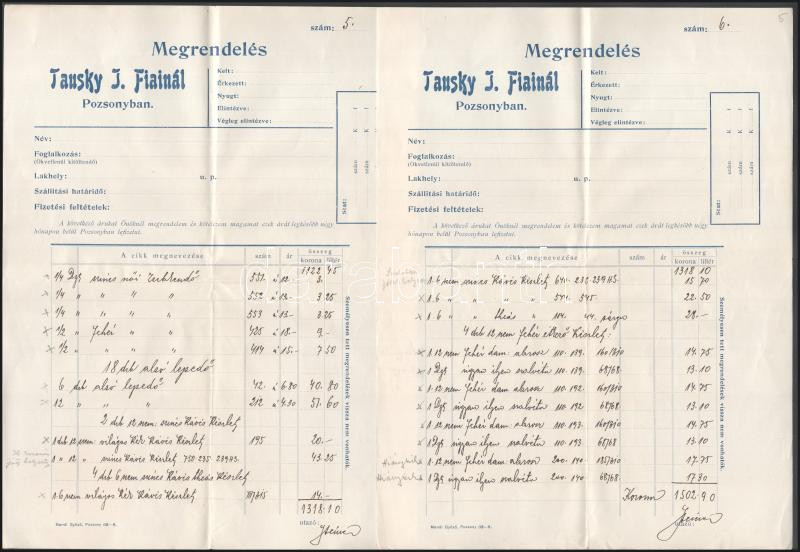 szám: 5.
Megrendelés
Tausky J. Fiainál
Pozsonyban.
Kelt:
Érkezett:
Nyugt:
Elintézve:
Végleg elintézve:
Név:
Foglalkozás:
(Okvetlenül kitöltendő)
Lakhely: u. p.
Szállitási határidő:
Fizetési feltételek:
szám K I
szám K I
Stat:
A következő árukat Önöknél megrendelem és kötelezem magamat ezek árát legkésőbb négy
hónapon belül Pozsonyban lefizetni.
A cikk megnevezése szám ár összeg
korona fillér
1122 45
1/4 Dzs szines női Zsebkendő 551 á 12 3.
1/4 " " " " 552 " 13- 3.25
1/4 " " " " 553 " 13- 3.25
1/2 " Fehér " " 425 " 18- 9.-
1/2 " " " " 414 " 15.- 7.50
18 dbt alsó lepedő
6 dbt alsó lepedő 42. á 6.80 40.80
12 " " " 212 á 4.30 51.60
2 dbt 12 nem. szines Kávés Készlet
1 dbt 12 nem: világos Kék Kávés Készlet 195 20.-
1 " 12 " szines Kávés Készlet 43.25
1. 6 nem világos Kék Kávés Készlet 14.-
1318.10
Személyesen tett megrendelések vissza nem vonhatók.
utazó:
szám: 6.
5
Megrendelés
Tausky J. Fiainál
Pozsonyban.
Kelt:
Érkezett:
Nyugt:
Elintézve:
Végleg elintézve:
Név:
Foglalkozás:
(Okvetlenül kitöltendő)
Lakhely: u. p.
Szállitási határidő:
Fizetési feltételek:
szám K I
szám K I
Stat:
A következő árukat Önöknél megrendelem és kötelezem magamat ezek árát legkésőbb négy
hónapon belül Pozsonyban lefizetni.
A cikk megnevezése szám ár összeg
korona fillér
1318 10
1. 6 nem szines Kávés Készlet 15 70
1 6 " " " 541. 345 22.50
1 6 " " 44. sárga 28.-
4 dbt 12 nem Fehér Készlet:
1. 12 nem Fehér dam: abrosz 110. 189. 14.75
1 Dzs ugyan ilyen szalvéta 110. 189. 68/68 13.10
1. 12 nem Fehér dam: abrosz 110. 192. 14.75
1 Dzs ugyan ilyen szalvéta 110. 192 68/68 13.10
1. 12 nem Fehér dam: abrosz 110. 193 14.75
1 Dzs ugyan ilyen szalvéta 110. 193. 68/68 13.10
1. 12 nem Fehér dam abrosz 200. 140. 17.75
1 Dzs ugyan ilyen szalvéta 200. 140 68/68. 17.30
Korona 1502.90
Személyesen tett megrendelések vissza nem vonhatók.
utazó:
darabanth